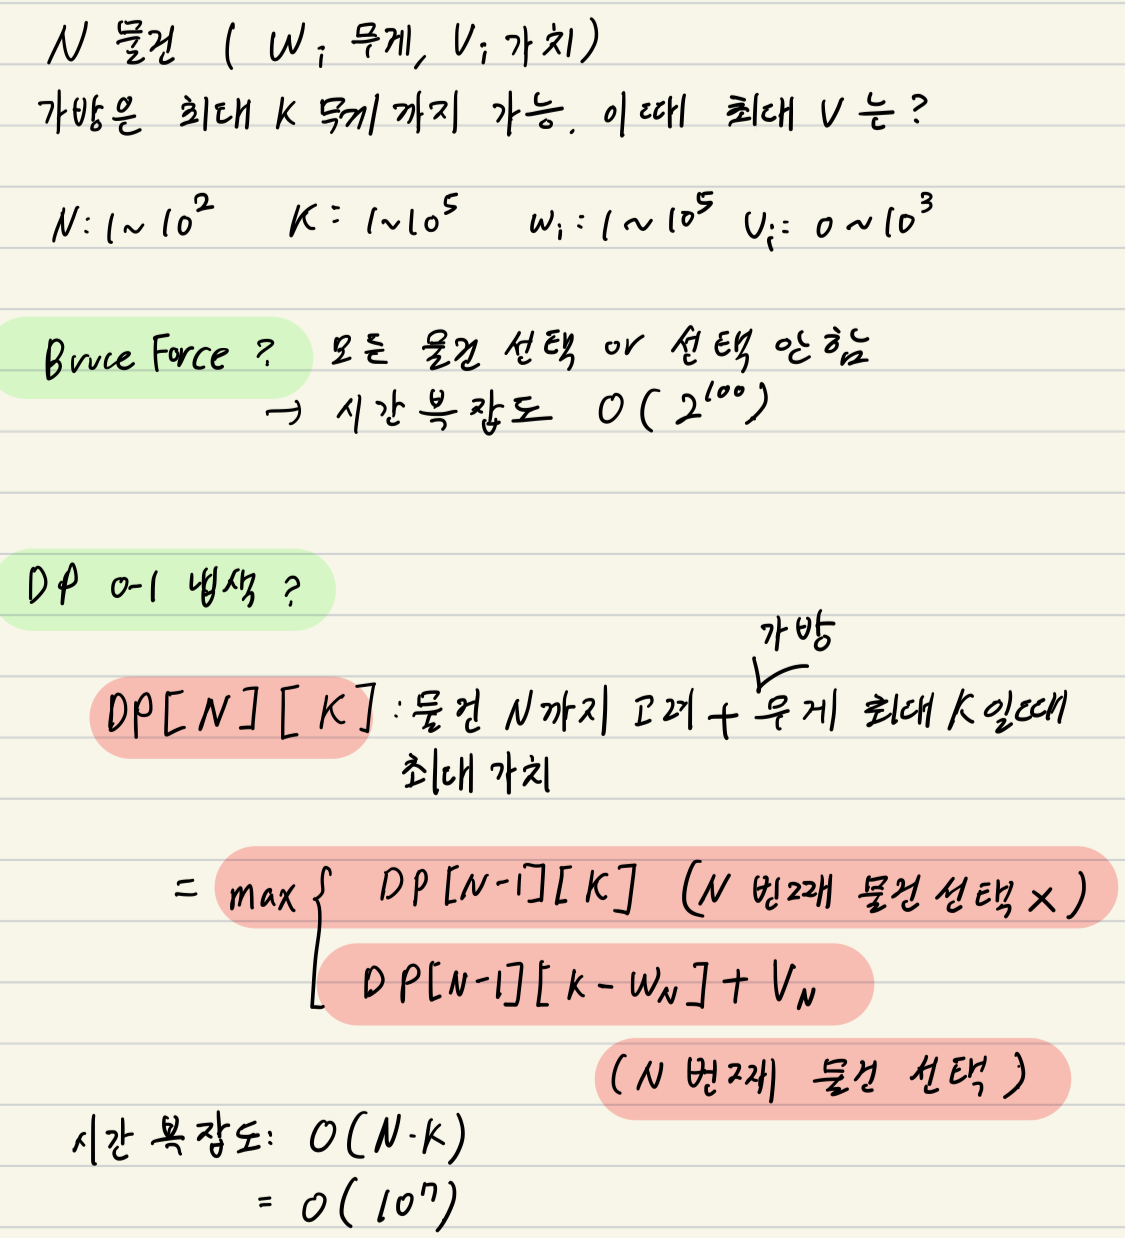 N 물건 ( Wi 무게, Vi 가치)
가방은 최대 K 무게까지 가능. 이때 최대 V는?
N: 1~10² K: 1~10⁵ Wi: 1~10⁵ Vi: 0~10³
Bruce Force? 모든 물건 선택 or 선택 안함
→ 시간 복잡도 O(2¹⁰⁰)
DP 0-1 냅색?
가방
DP[N][K] : 물건 N까지 고려 + 무게 최대 K일때
최대 가치
= max { DP[N-1][K] (N 번째 물건 선택 x)
DP[N-1][K-WN] + VN
(N 번째 물건 선택)
시간 복잡도: O(N·K)
= O(10⁷)